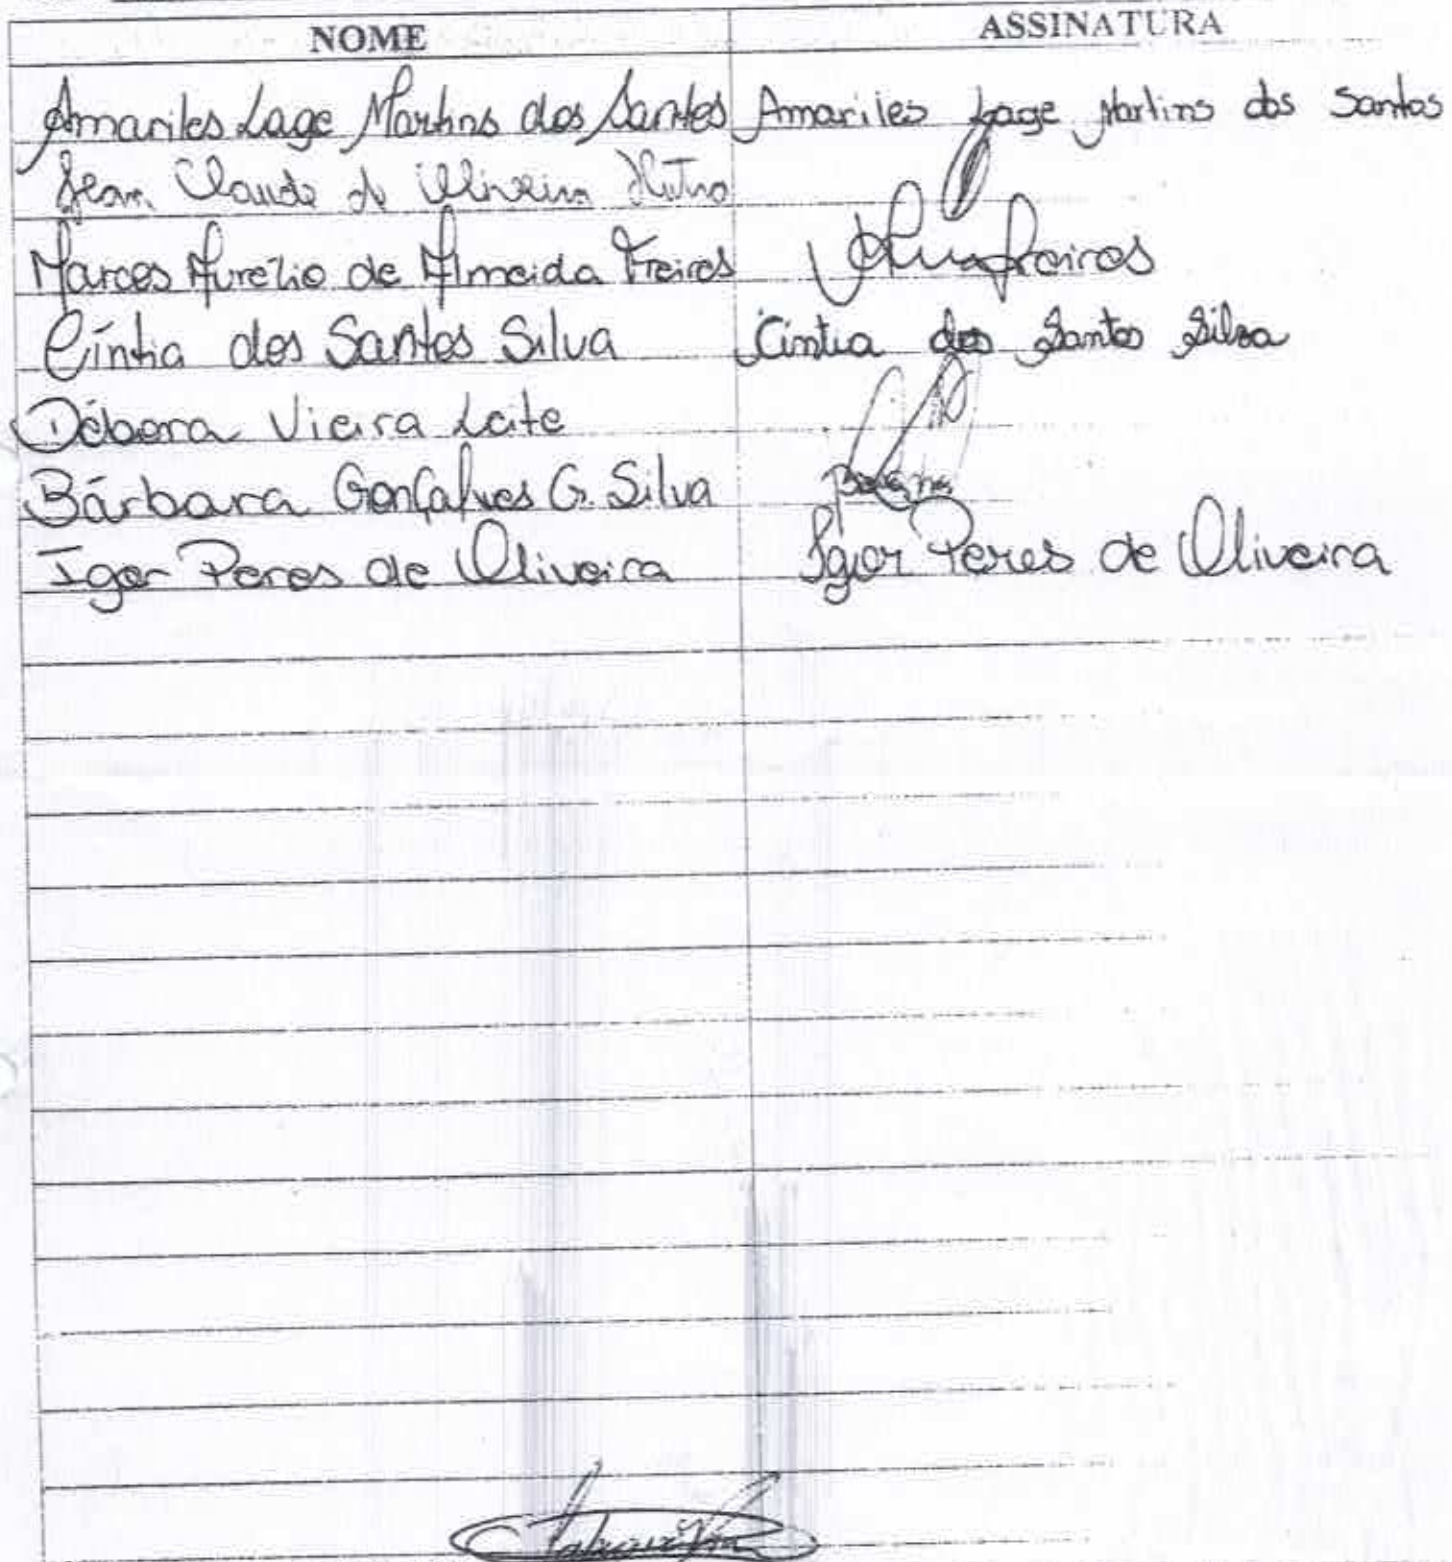 NOME ASSINATURA
Amariles Lage Martins dos Santos Amariles Lage Martins dos Santos
Jean Claude de Oliveira
Marcos Aurélio de Almeida Freires Freires
Cíntia dos Santos Silva Cíntia dos Santos Silva
Débora Vieira Leite
Bárbara Gonçalves G. Silva
Igor Peres de Oliveira Igor Peres de Oliveira